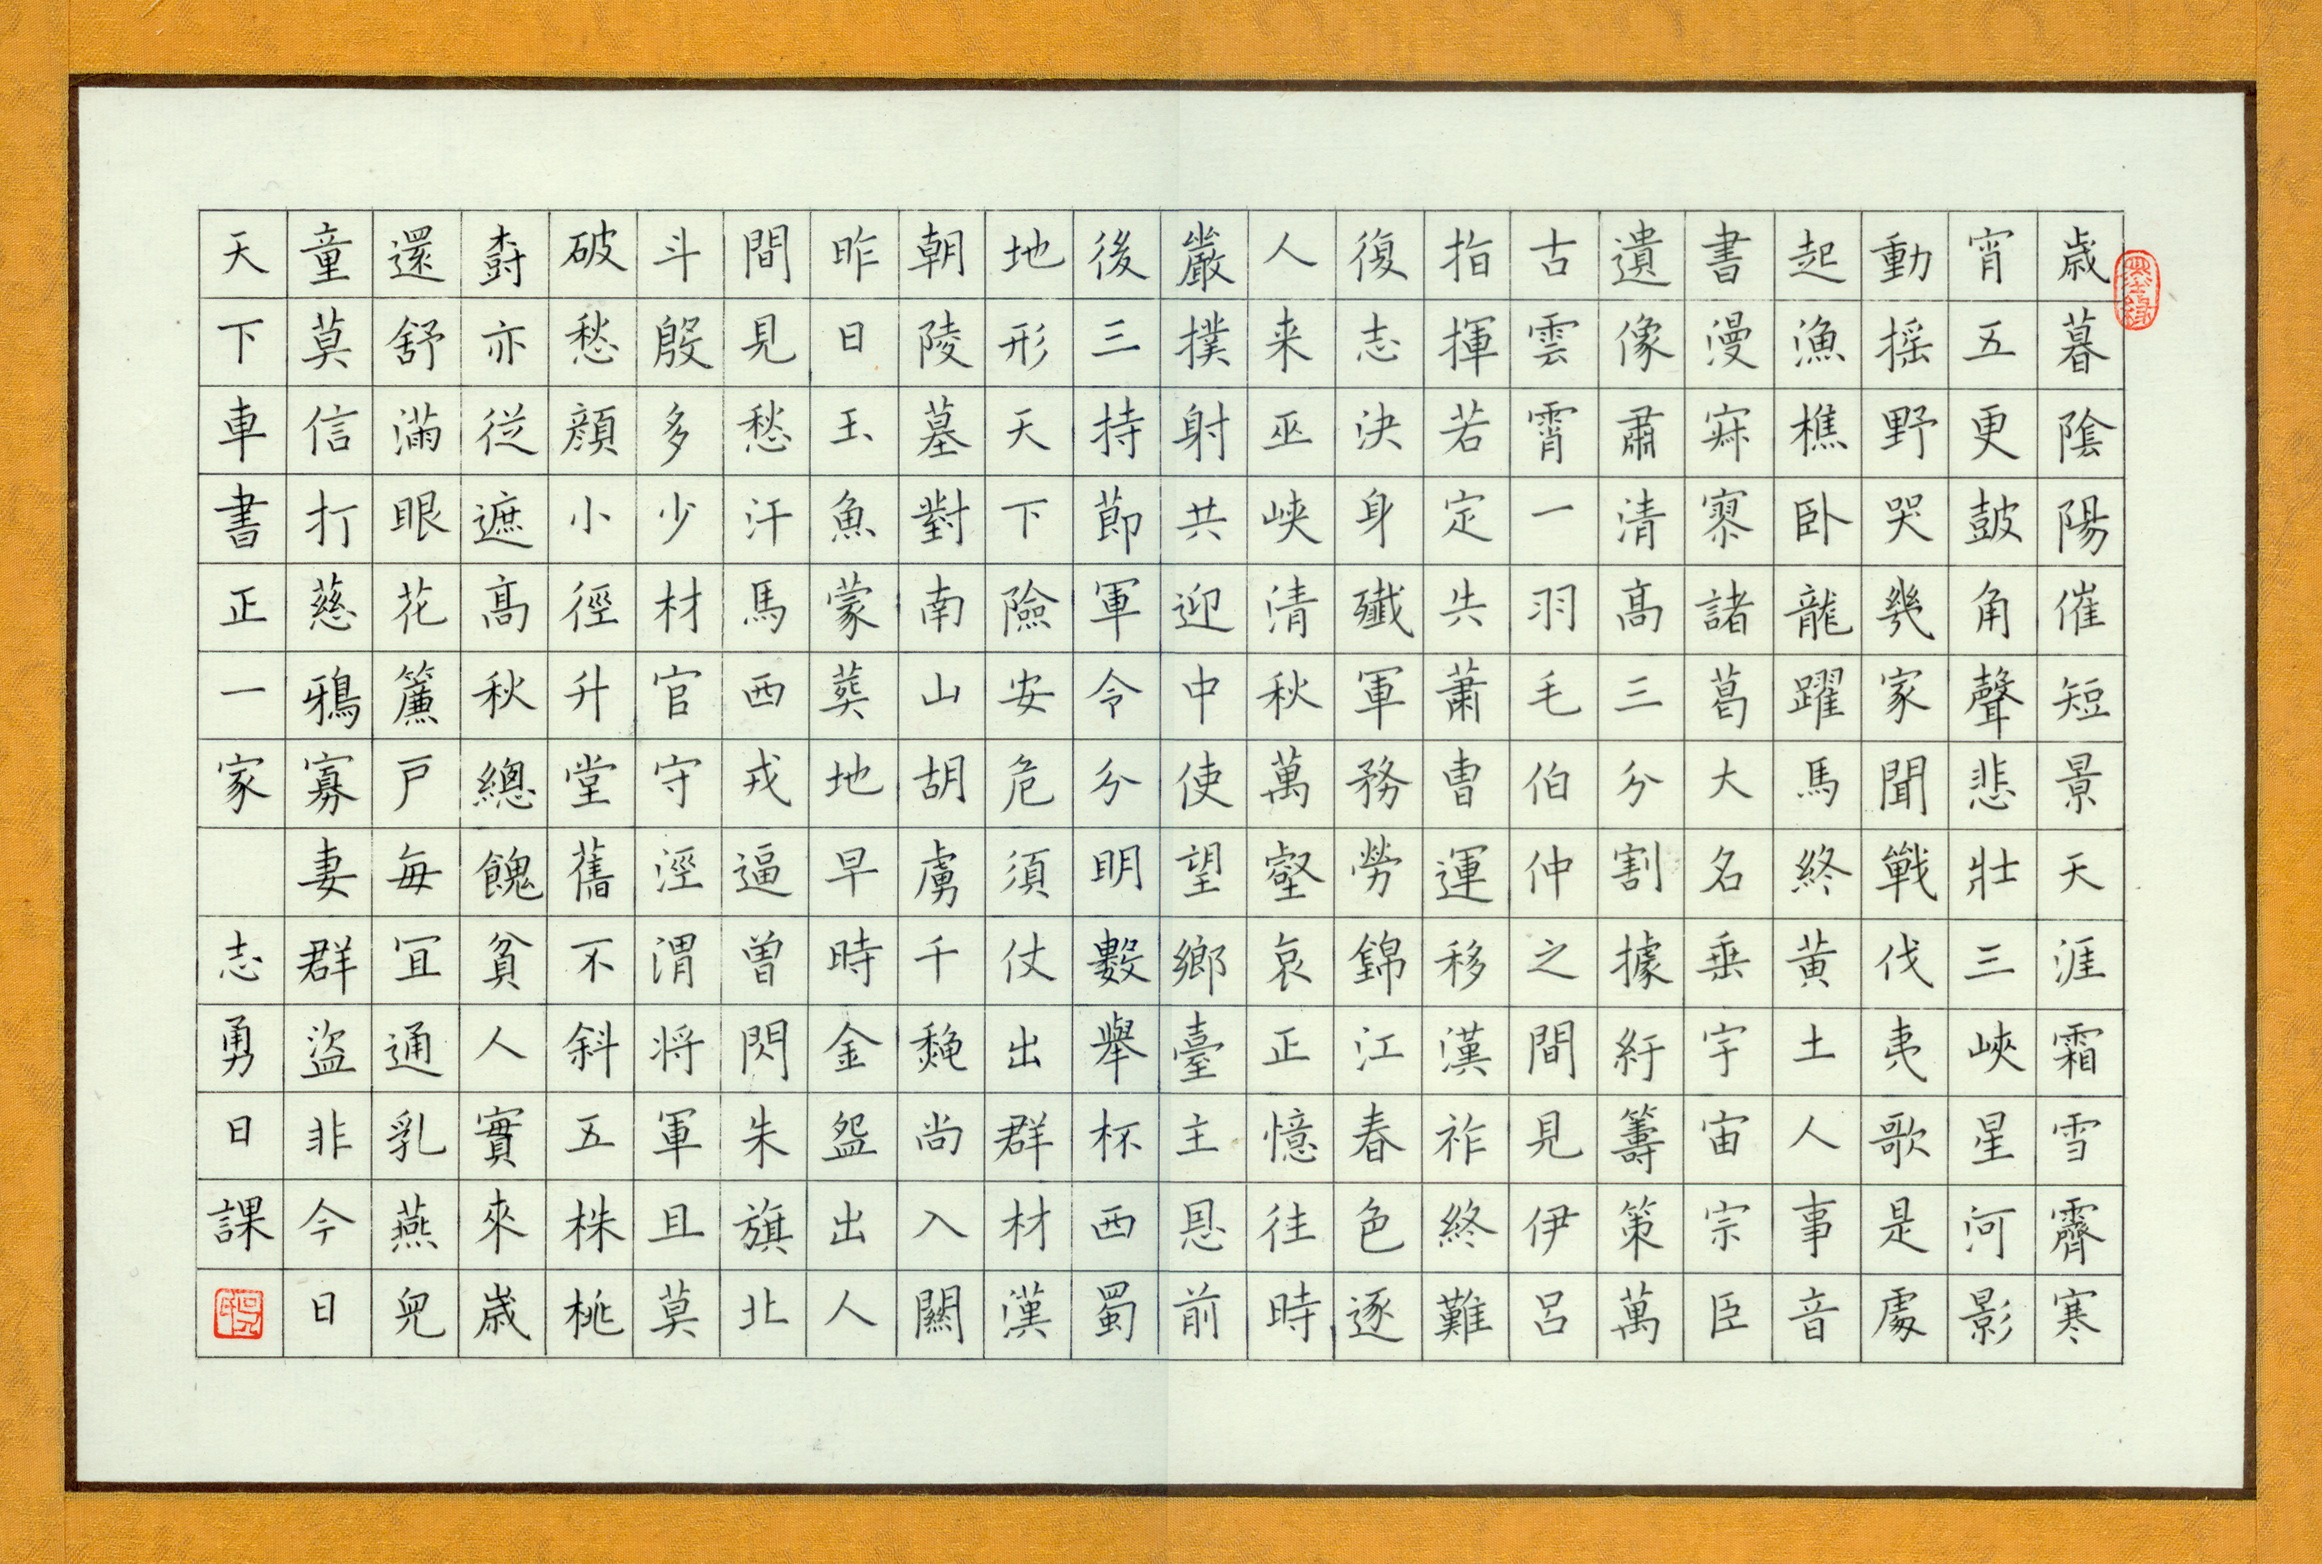 歳暮陰陽催短景天涯霜雪霽寒
宵五更鼓角聲悲壯三峽星河影
動摇野哭幾家聞戰伐夷歌是處
起漁樵卧龍躍馬終黄土人事音
書漫寂寥諸葛大名垂宇宙宗臣
遺像肅清高三分割據紆籌策萬
古雲霄一羽毛伯仲之間見伊呂
指揮若定失蕭曹運移漢祚終難
復志決身殲軍務勞錦江春色逐
人来巫峽清秋萬壑哀正憶往時
嚴撲射共迎中使望鄉臺主恩前
後三持節軍令分明數舉杯西蜀
地形天下險安危須仗出群材漢
朝陵墓對南山胡虜千龝尚入關
昨日玉魚蒙葬地早時金盌出人
間見愁汗馬西戎逼曾閃朱旗北
斗殷多少材官守涇渭将軍且莫
破愁顏小徑升堂舊不斜五株桃
樹亦從遮高秋總餽貧人實來歳
還舒滿眼花簾戸每宜通乳燕兒
童莫信打慈鴉寡妻群盜非今日
天下車書正一家 志勇日課